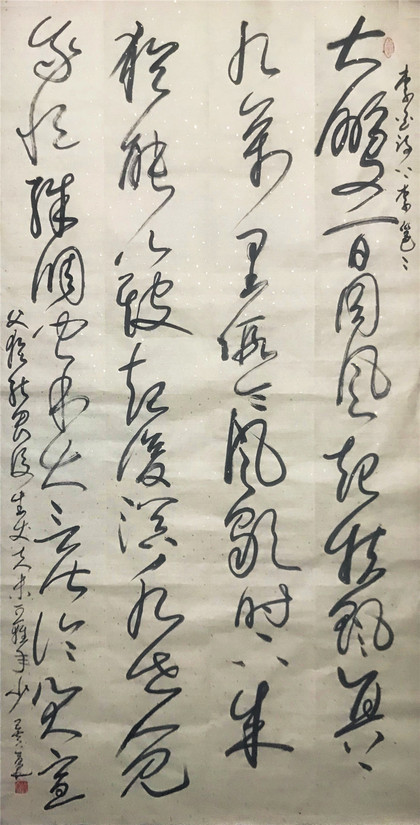 李白诗上李邕
大鵬一日同风起扶颻直上
九萬里假令风歇时下来
猶能簸却滄溟水世人见
我恒殊调闻余大言皆冷笑宣
父猶能畏後生丈夫未可轻年少